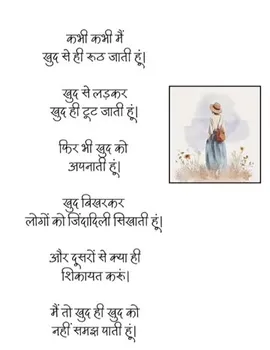 कभी कभी मैं
खुद से ही रूठ जाती हूं|
खुद से लड़कर
खुद ही टूट जाती हूं|
फिर भी खुद को
अपनाती हूं|
खुद बिखरकर
लोगों को जिंदादिली सिखाती हूं|
और दूसरों से क्या ही
शिकायत करूं|
मैं तो खुद ही खुद को
नहीं समझ पाती हूं|